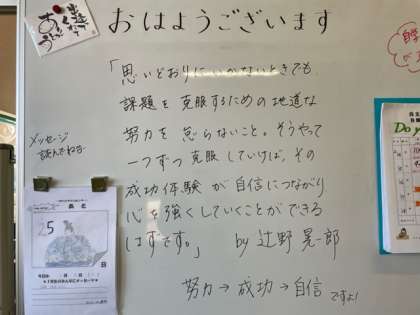 おはようございます
「思いどおりにいかないときでも
課題を克服するための地道な
努力を怠らないこと。そうやって
一つずつ克服していけば、その
成功体験が自信につながり
心を強くしていくことができる
はずです。」 by 辻野晃一郎
努力→成功→自信ですよ!
メッセージ
読んでね
25
日
Do